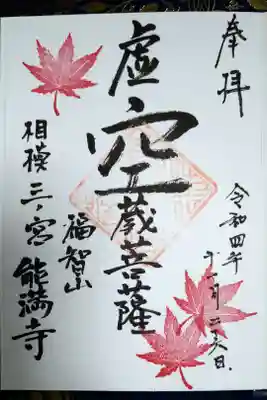 奉拝
令和四年
十一月二十六日
虚空蔵菩薩
福智山
相模三ノ宮能満寺